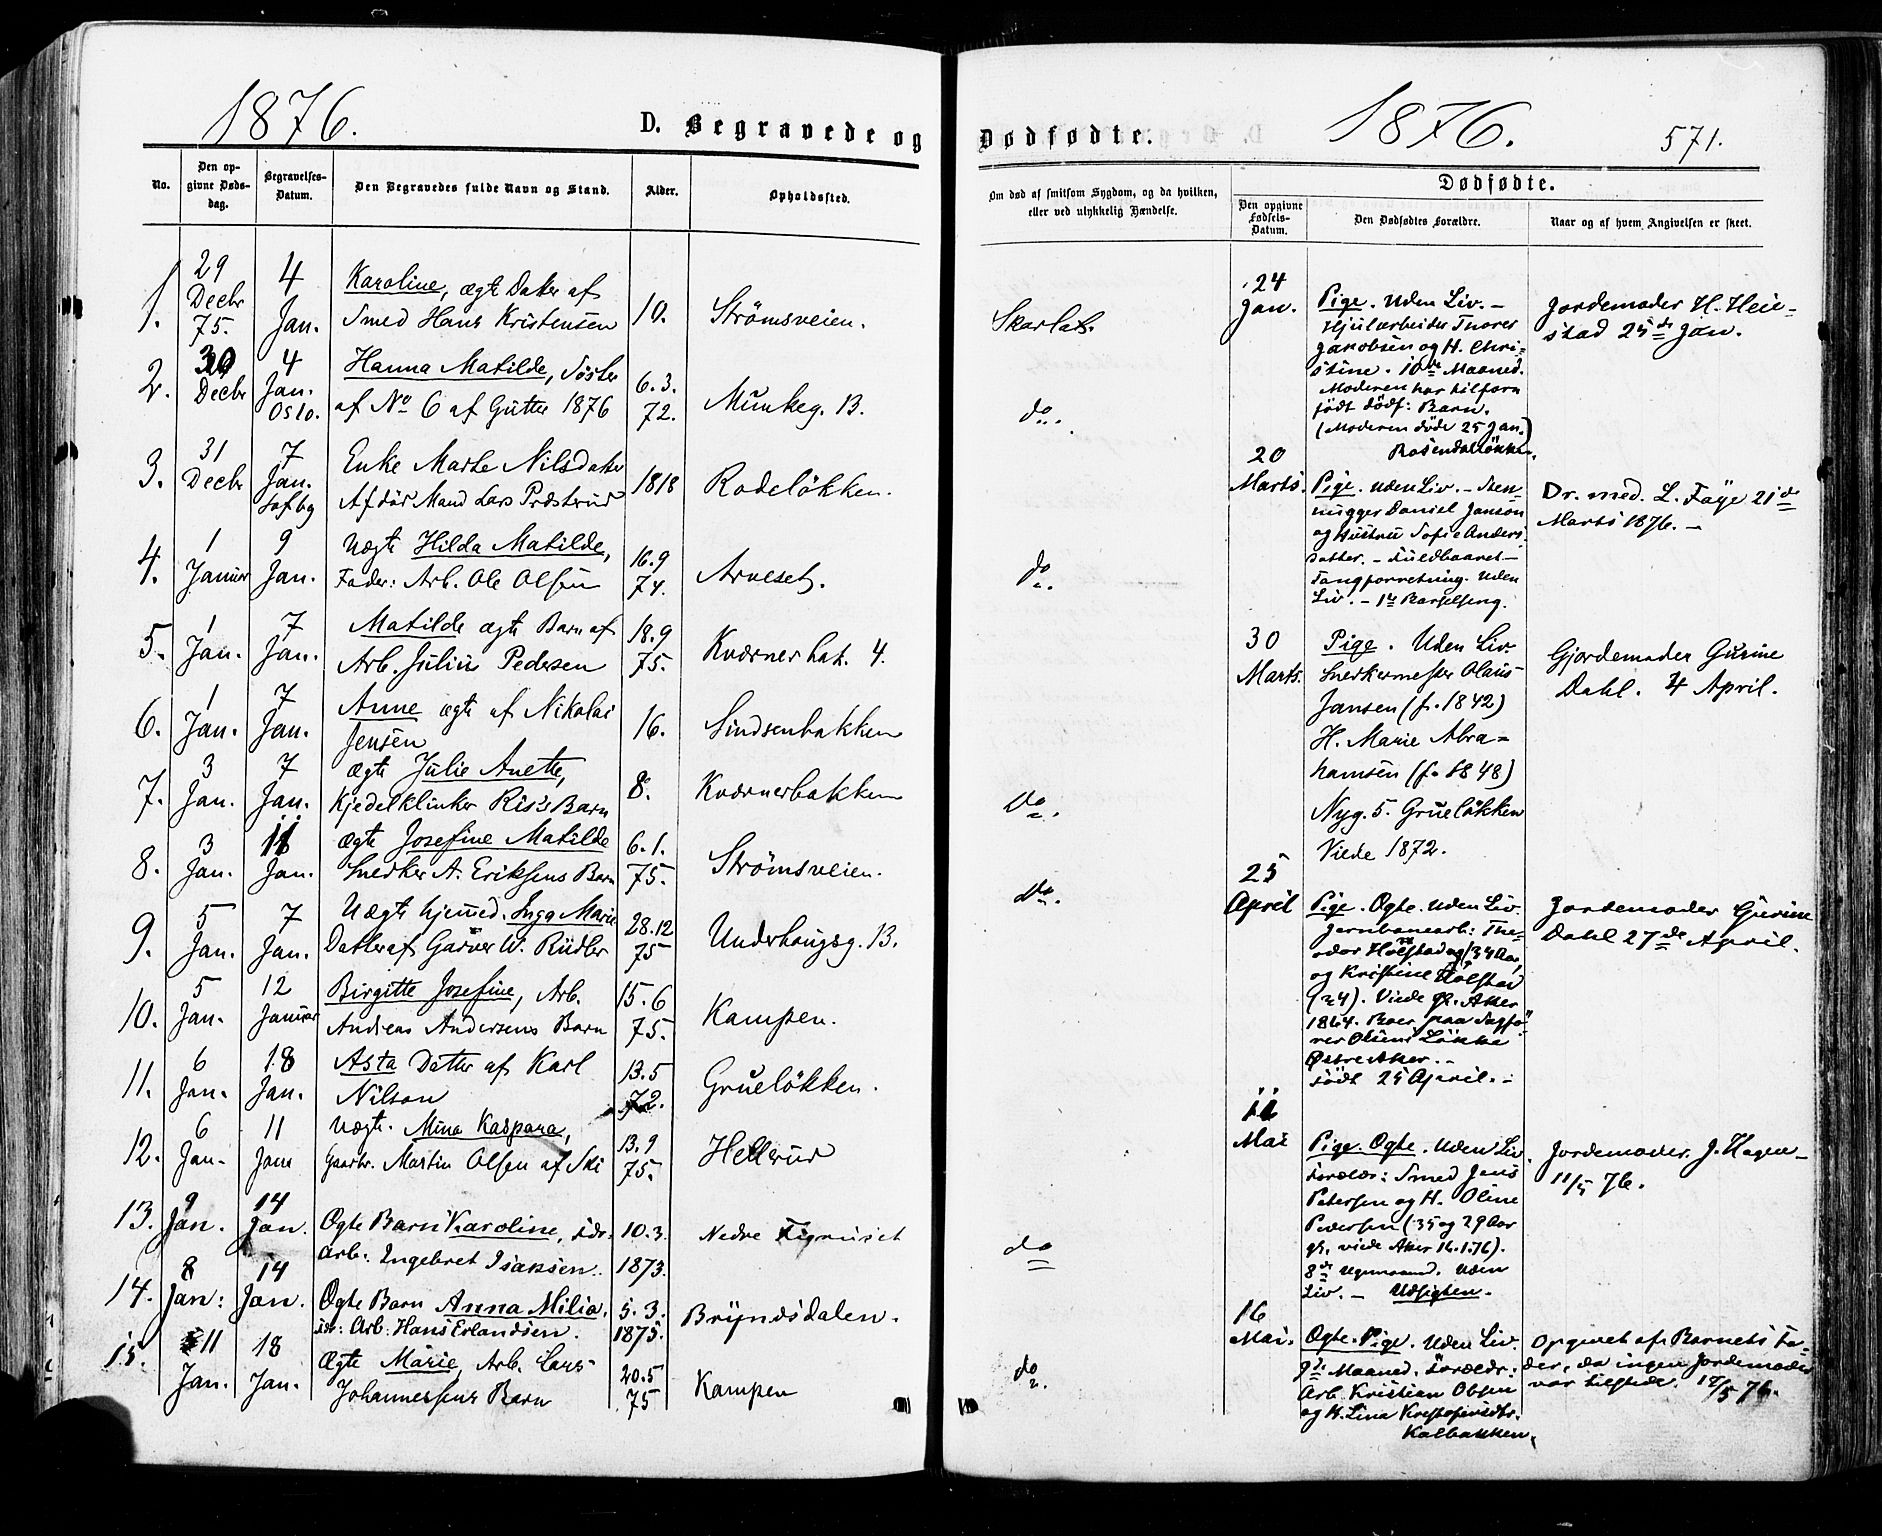 1876.
D. Begravede og
No.
Den op-
givne Døds-
dag.
Begravelses-
Datum.
Den Begravedes fulde Navn og Stand.
Alder.
Opholdssted.
1.
29
Decbr
75.
4
Jan.
Karoline, ægte Datter af
Smed Hans Kristensen
10.
Strömsveien.
2.
30
Decbr
4
Jan.
Oslo.
Hanna Matilde, Söster
af No 6 af Gutter 1876
6.3.
72.
Munkeg. 13.
3.
31
Decbr
7
Jan.
Enke Marte Nilsdatter
Afdöd Mand Lars Præsterud
1818
Rodelökken.
4.
1
Januar
9
Jan.
Uægte Hilda Matilde,
Fader: Arb. Ole Olsen
16.9
74.
Arveset.
5.
1
Jan.
7
Jan.
Matilde ægte Barn af
Arb. Julius Pedersen
18.9
75.
Kværnerbak. 4.
6.
1
Jan.
7
Jan.
Anne ægte af Nikolai
Jensen
16.
Sindsenbakken
7.
3
Jan.
7
Jan.
ægte Julie Anette,
Kjedelklinker Ris's Barn
8.
Kværnerbakken
8.
3
Jan.
11
Jan.
ægte Josefine Matilde
Snedker A. Eriksens Barn
6.1.
75.
Strömsveien.
9.
5
Jan.
7
Jan.
Uægte hjemmed. Inga Marie
Datter af Garver W. Rüdler
28.12
75
Underhaugsg. 13.
10.
5
Jan.
12
Januar
Birgitte Josefine, Arb.
Andreas Andersens Barn
15.6
75.
Kampen.
11.
6
Jan.
18
Jan.
Asta Datter af Karl
Nilson
13.5
72.
Gruelökken.
12.
6
Jan.
11
Jan
Uægte. Mina Kaspara,
Gaardbr. Martin Olsen af Ski
13.9
75.
Hellerud
13.
9
Jan.
14
Jan.
Ægte Barn Karoline, Fdr.
Arb: Ingebret Isaksen.
10.3.
1873.
Nedre
14.
8
Jan:
14
Jan.
Ægte Barn Anna Milia,
Fdr: Arb: Hans Erlandsen.
5.3.
1875.
Bryndsdalen.
15.
11
Jan.
18
Jan.
Ægte Marie, Arb. Lars
Johannessens Barn
20.5
75
Kampen
Dødfødte.
1876.
571.
Om død af smitsom Sygdom, og da hvilken,
eller ved ulykkelig Hændelse.
Dødfødte.
Den opgivne
Fødsels-
Datum.
Den Dødfødtes Forældre.
Naar og af hvem Angivelsen er skeet.
Skarlat.
do.
do.
do.
do.
do
do.
24
Jan.
Pige. Uden Liv. –
Hjularbeider Thorer
Jakobsen og H. Chri-
stine. 10de Maaned.
Moderen har tilforn
födt dödf: Barn.
(Moderen döde 25 Jan.)
Rosendallökken.
Jordemoder H. Heie-
stad 25de Jan.
20
Marts.
Pige. Uden Liv. – Sten-
hugger Daniel Janson
og Hustru Sofie Anders-
datter. – Fuldbaaret –
Tangforretning. Uden
Liv. – 1te Barselseng.
Dr. med. L. Faye 21de
Marts 1876. –
30
Marts.
Pige. Uden Liv
Snedkermester Olaus
Jansen (f. 1842)
H. Marie Abra-
hamsen (f. 1848)
Nyg. 5. Gruelökken
Viede 1872.
Gjordemoder Gurine
Dahl. 4 April.
25
April
Pige. Ægte. Uden Liv.
Jernbanearb: Theo-
dor Holstad og (34 Aar)
og Kristine Holstad
(34). Viede gl. Aker
1864. Boer paa Sagfö-
rer Olsens Lökke
Östre Aker. –
Födt 25 April. –
Jordemoder Gurine
Dahl 27de April.
11
Mai
Pige. Ægte. Uden Liv
Forældr: Smed Jens
Petersen og H. Oline
Pedersen (35 og 29 Aar
gl, viede Aker 16.1.76).
8de Uden
Liv. – Udsigten.
Jordemoder J. Hagen –
11/5 76.
16
Mai.
Ægte. Pige. Uden Liv.
9de Maaned. Forældr:
Arb. Kristian Olsen
og H. Lina Kristofersdtr.
Kalbakken.
Opgivet af Barnets Fa-
der, da ingen Jordemoder
var tilstede. 17/5 76.